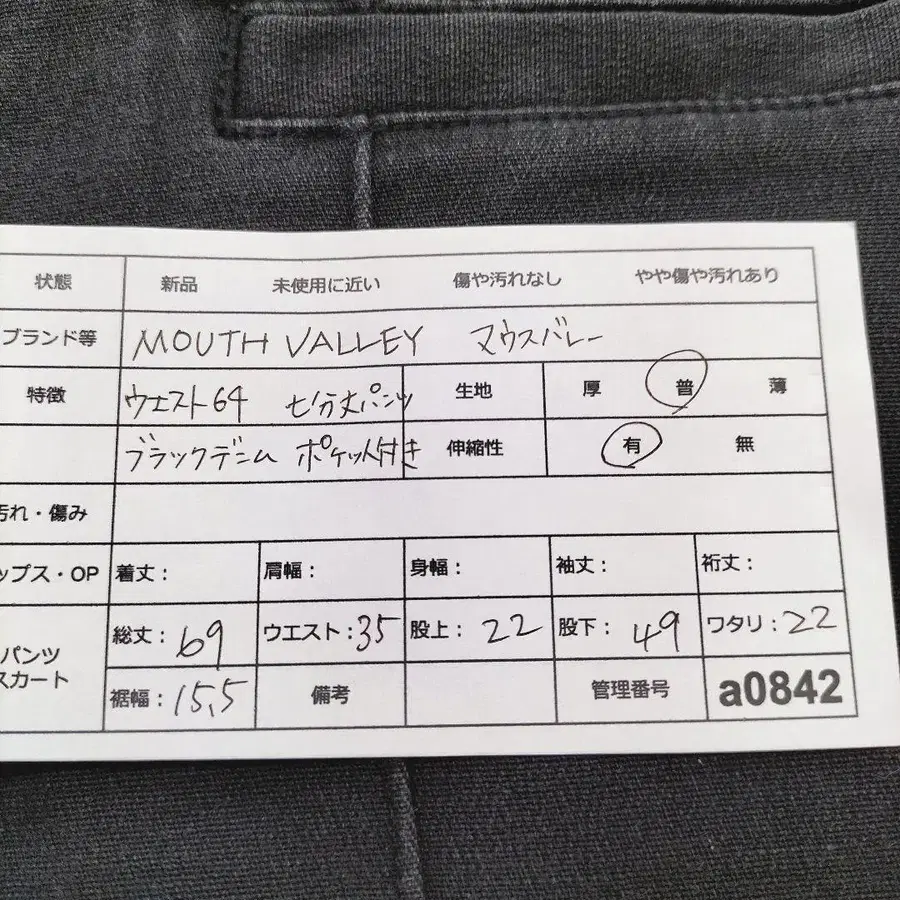 状態 新品 未使用に近い 傷や汚れなし やや傷や汚れあり
ブランド等 MOUTH VALLEY マウスバレー
特徴 ウエスト64 七分丈パンツ 生地 厚 普 薄
ブラックデニム ポケット付き 伸縮性 有 無
汚れ・傷み
ップス・OP 着丈: 肩幅: 身幅: 袖丈: 裄丈:
パンツ 総丈:69 ウエスト:35 股上:22 股下:49 ワタリ:22
スカート 裾幅:15,5 備考 管理番号 a0842